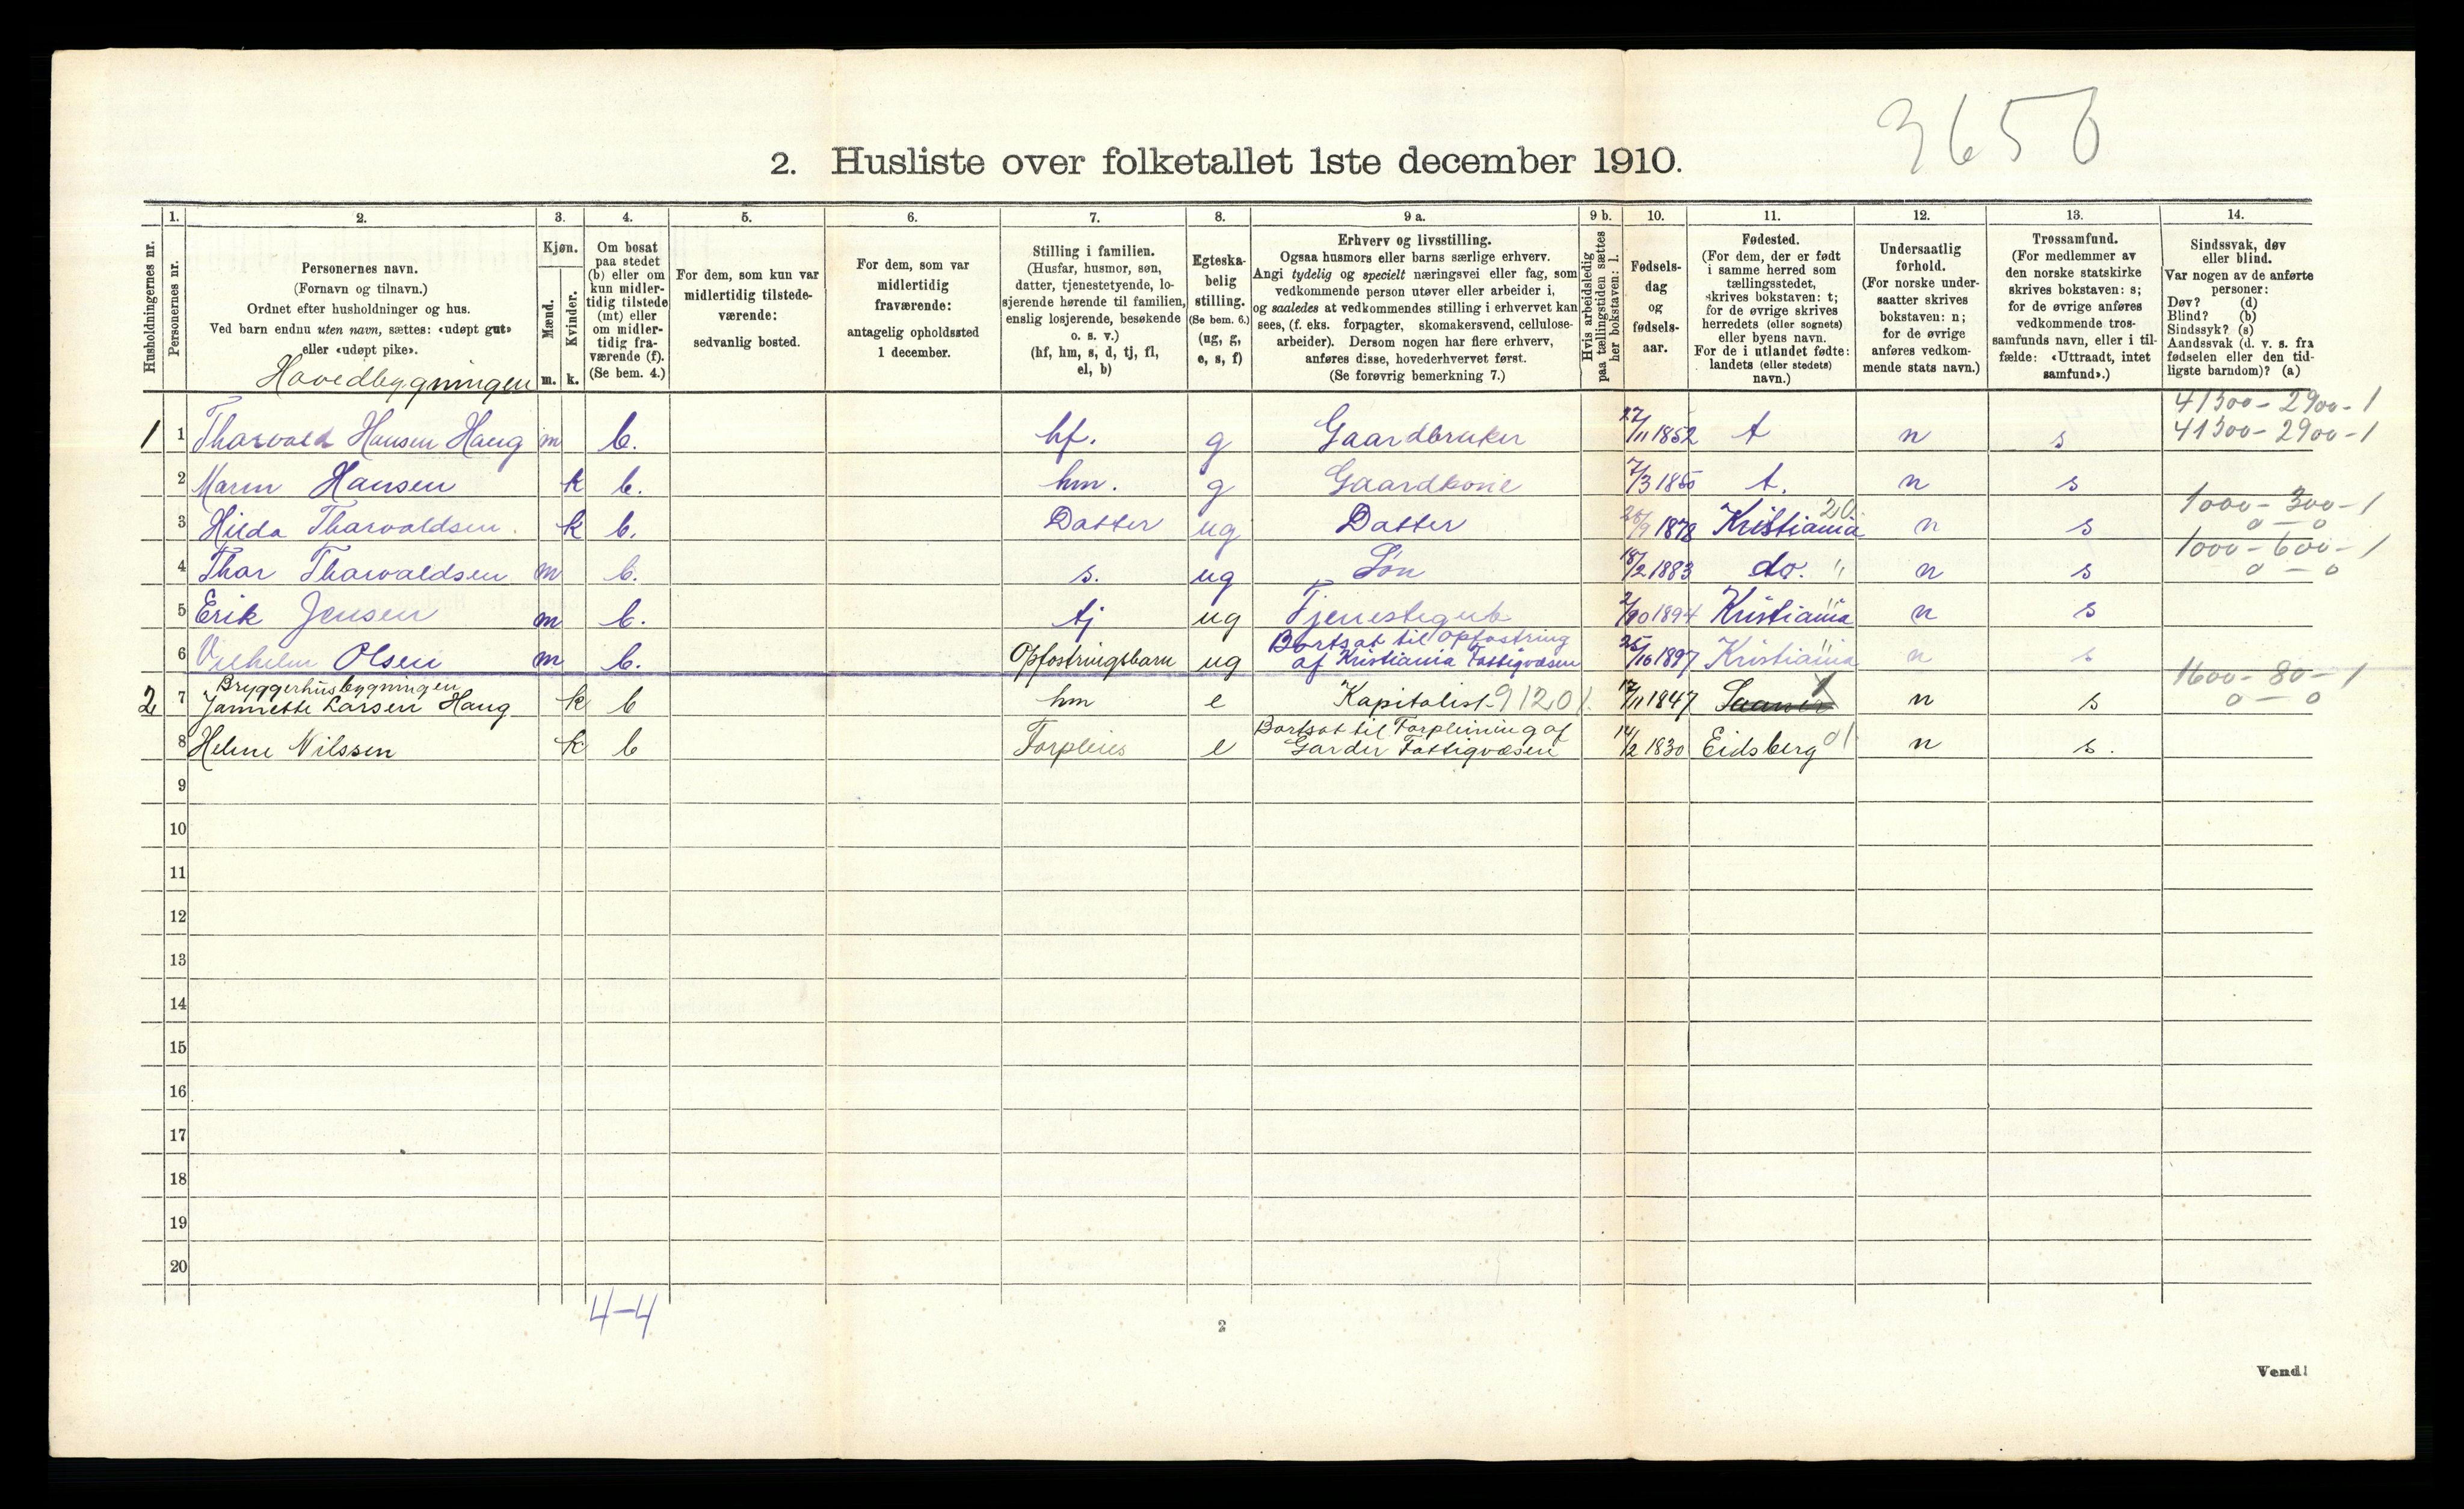 3650
2. Husliste over folketallet 1ste december 1910.
Husholdningernes nr.
1.
Personernes nr.
2.
Personernes navn.
(Fornavn og tilnavn.)
Ordnet efter husholdninger og hus.
Ved barn endnu uten navn, sættes: «udøpt gut»
eller «udøpt pike».
Hovedbygningen
3.
Kjøn.
Mænd.
Kvinder.
m. k.
4.
Om bosat
paa stedet
(b) eller om
kun midler-
tidig tilstede
(mt) eller
om midler-
tidig fra-
værende (f).
(Se bem. 4.)
5.
For dem, som kun var
midlertidig tilstede-
værende:
sedvanlig bosted.
6.
For dem, som var
midlertidig
fraværende:
antagelig opholdssted
1 december.
7.
Stilling i familien.
(Husfar, husmor, søn,
datter, tjenestetyende, lo-
sjerende hørende til familien,
enslig losjerende, besøkende
o. s. v.)
(hf, hm, s, d, tj, fl,
el, b)
8.
Egteska-
belig
stilling.
(Se bem. 6.)
(ug, g,
e, s, f)
9 a.
Erhverv og livsstilling.
Ogsaa husmors eller barns særlige erhverv.
Angi tydelig og specielt næringsvei eller fag, som
vedkommende person utøver eller arbeider i,
og saaledes at vedkommendes stilling i erhvervet kan
sees, (f. eks. forpagter, skomakersvend, cellulose-
arbeider). Dersom nogen har flere erhverv,
anføres disse, hovederhvervet først.
(Se forøvrig bemerkning 7.)
9 b.
Hvis arbeidsledig
paa tællingstiden sættes
her bokstaven: l.
10.
Fødsels-
dag
og
fødsels-
aar.
11.
Fødested.
(For dem, der er født
i samme herred som
tællingsstedet,
skrives bokstaven: t;
for de øvrige skrives
herredets (eller sognets)
eller byens navn.
For de i utlandet fødte:
landets (eller stedets)
navn.)
12.
Undersaatlig
forhold.
(For norske under-
saatter skrives
bokstaven: n;
for de øvrige
anføres vedkom-
mende stats navn.)
13.
Trossamfund.
(For medlemmer av
den norske statskirke
skrives bokstaven: s;
for de øvrige anføres
vedkommende tros-
samfunds navn, eller i til-
fælde: «Uttraadt, intet
samfund».)
14.
Sindssvak, døv
eller blind.
Var nogen av de anførte
personer:
Døv? (d)
Blind? (b)
Sindssyk? (s)
Aandssvak (d. v. s. fra
fødselen eller den tid-
ligste barndom)? (a)
41300 - 2900 - 1
1 1 Tharvald Hansen Haug m b. hf. g Gaardbruker 27/11 1852 t n s 41300 - 2900 - 1
2 Maren Hansen k b. hm. g Gaardkone 7/3 1855 t. n s
20 1000 - 300 - 1
3 Hilda Tharvaldsen. k b. Datter ug Datter 1878 Kristiania n s 0 - 0
1000 - 600 - 1
4 Thor Tharvaldsen m b. s. ug Søn 18/2 1883 do. " n s 0 - 0
5 Erik Jensen m b. tj ug Tjenestegut 1894 Kristiania " n s
Bortsat til Opfostring
6 Vilhelm Olsen m b. Opfostringsbarn ug af Kristiania Fattigvæsen 25/10 1897 Kristiania " n s
Bryggerhusbygningen 1600 - 80 - 1
2 7 Jannette Larsen Haug k b hm e Kapitalist 91201. 17/11 1847 n s 0 - 0
Bortsat til Forpleining af
8 Helene Nilssen k b Forpleies e Garder Fattigvæsen 14/2 1830 Eidsberg 01 n s.
9
10
11
12
13
14
15
16
17
18
19
20
4-4
2
Vend!